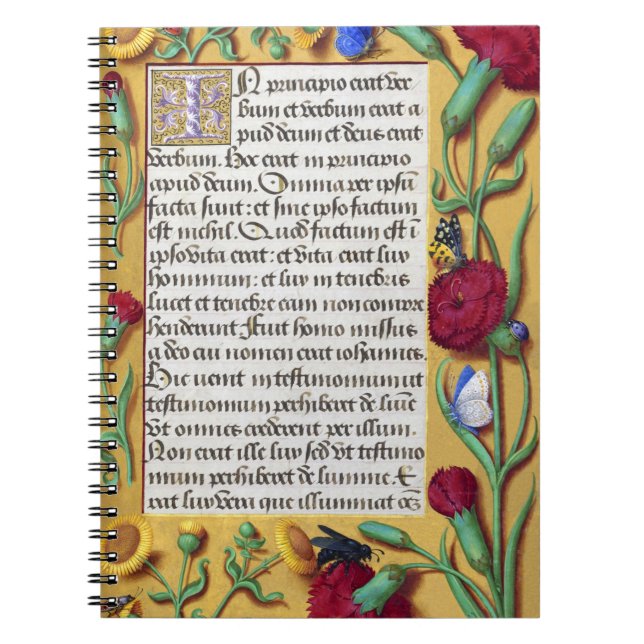 In principio erat ver
bum et verbum erat a
pud deum et deus erat
verbum. Hoc erat in principio
apud deum. Omnia per ipsu
facta sunt: et sine ipso factum
est nichil. Quod factum est i
ipso vita erat: et vita erat lux
hominum: et lux in tenebris
lucet et tenebre eam non compre
henderunt Fuit homo missus
a deo cui nomen erat iohannes.
Hic venit in testimonium ut
testimonium perhiberet de lumie
Vt omnes crederent per illum.
Non erat ille lux sed Vt testimo
nium perhiberet de lumine. E
rat lux vera que illuminat oēz